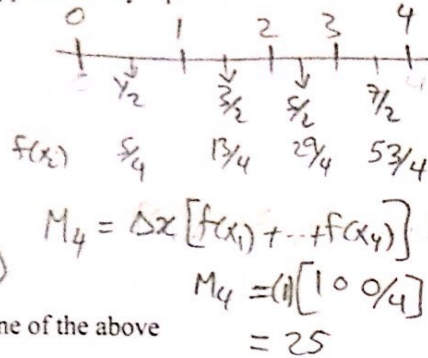 0 1 2 3 4
1/2 3/2 5/2 7/2
f(xᵢ) 5/4 13/4 29/4 53/4
M₄ = Δx [f(x₁) + ... + f(x₄)]
M₄ = (1) [100/4]
ne of the above
= 25